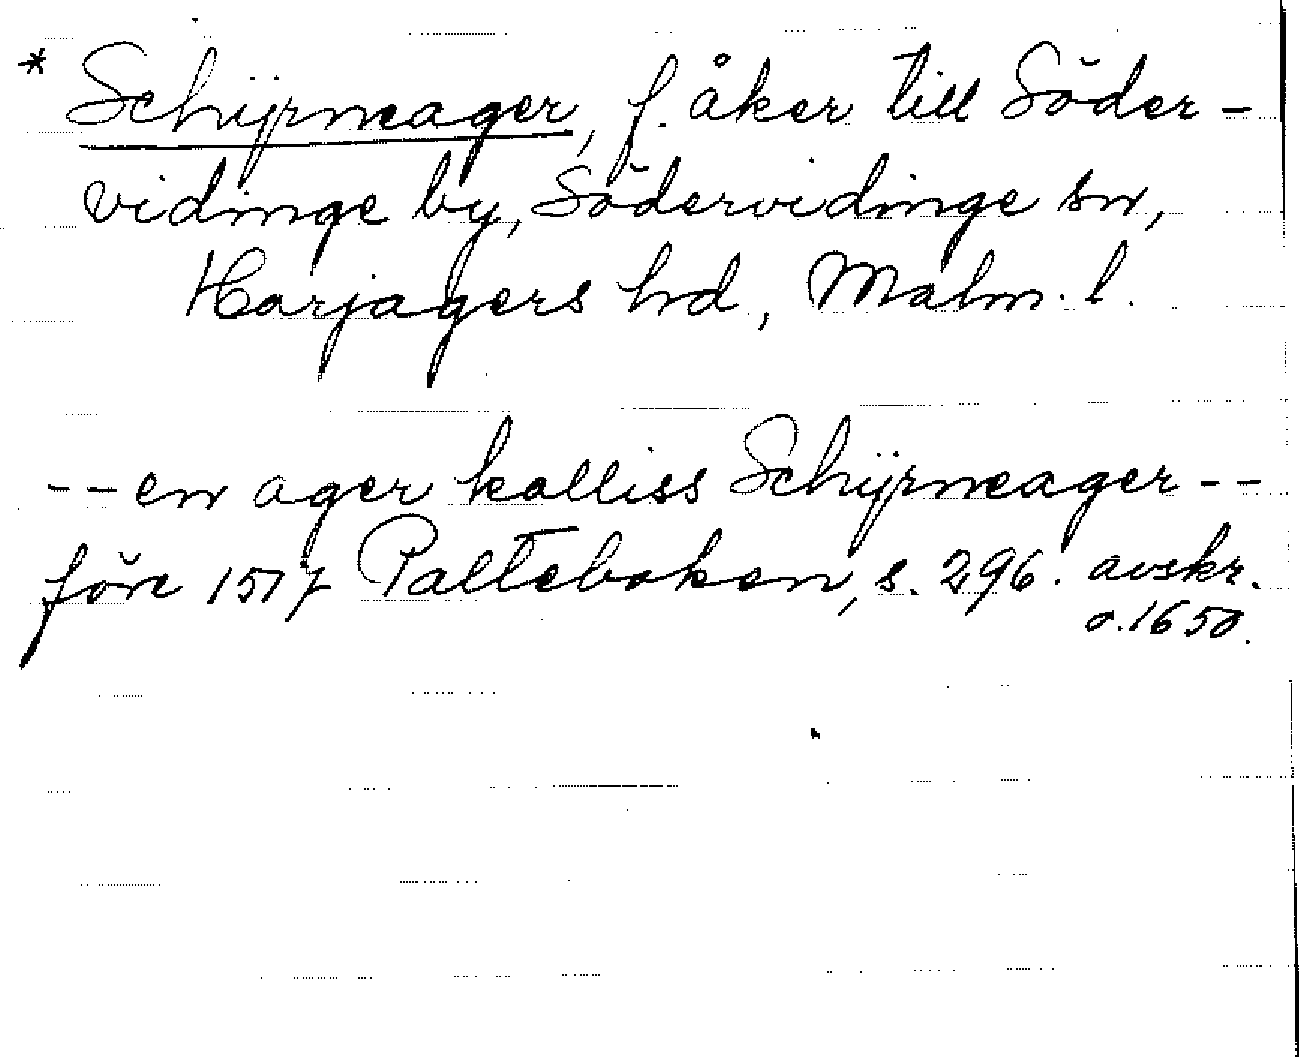 * Schÿrmeager, f. åker till Söder-
vidinge by, Södervidinge sn,
Harjagers hd, Malm. l.
--en ager kalliss Schÿrmeager--
före 1517 Palteboken, s. 296. avskr.
o. 1650.